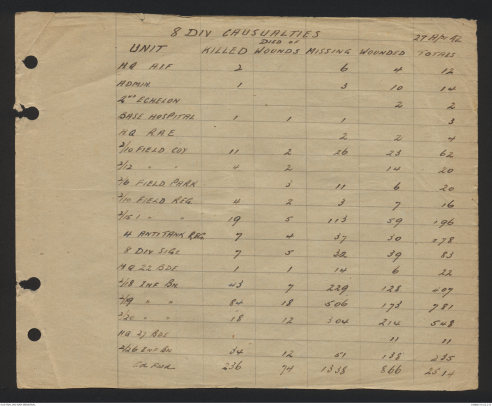 8 DIV CAUSUALTIES 27 Apr 42
UNIT KILLED DIED OF WOUNDS MISSING WOUNDED TOTALS
H.Q A.I.F 2 6 4 12
ADMIN. 1 3 10 14
2ND ECHELON 2 2
BASE HOSPITAL 1 1 1 3
H.Q R.A.E 2 2 4
2/10 FIELD COY 11 2 26 23 62
2/12 " " 4 2 14 20
2/6 FIELD PARK 3 11 6 20
2/10 FIELD REG 4 2 3 7 16
2/15 " " 19 5 113 59 196
4 ANTITANK REG 7 4 37 30 178
8 DIV SIGS 7 5 32 39 83
H.Q 22 BDE 1 1 14 6 22
2/18 INF BN 43 7 229 128 407
2/19 " " 84 18 506 173 781
2/20 " " 18 12 304 214 548
H.Q 27 BDE 11 11
2/26 INF BN 34 12 51 138 235
236 74 1338 866 2514